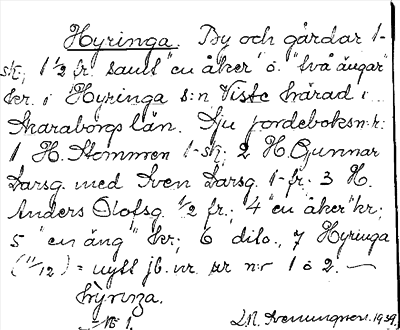 Hyringa. By och gårdar 1-
sk; 1 1/2 fr. samt "en åker" o. "två ängar"
kr. i Hyringa s:n, Viste härad i
Skaraborgs län. Sju jordeboksn:r:
1 H. Kommen 1-sk; 2 H. Gunnar
Larsg. med Sven Larsg. 1-fr. 3 H.
Anders Olofsg. 1/2 fr.; 4 "en åker" kr;
5 "en äng" kr; 6 dito., 7 Hyringa
(11/12) = nytt jb. nr ur n:r 1 o 2. —
hỳnza.
N:o 1. 1939.